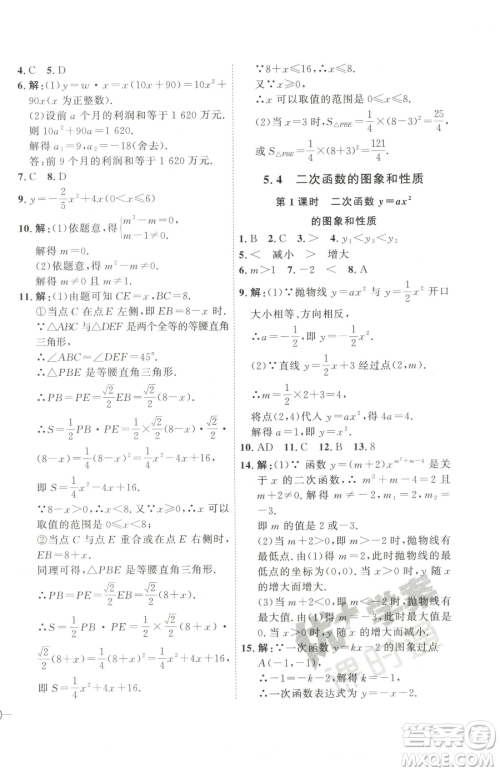 4. C 5. D
6. 解:(1)y=w·x=x(10x+90)=10x²+
90x(x 为正整数).
(2)设前 a 个月的利润和等于 1 620 万元,
则 10a²+90a=1 620.
解得 a₁=9,a₂=-18(舍去).
答:前 9 个月的利润和等于 1 620 万元.
7. C 8. D
9. y=-2/5x²+4x(0<x≤6)
10. 解:(1)依题意,得{m²-m=0, m-1≠0.
解得 m=0.
(2)依题意,得 m²-m≠0.
解得 m≠0 且 m≠1.
11. 解:(1)由题可知 CE=x,BC=8.
①当点 E 在点 B 左侧,即 EB=8-x 时.
∵△ABC 与△DEF 是两个全等的等腰直角
三角形,
∴∠ABC=∠DEF=45°.
∴△PBE 也是等腰直角三角形.
∴PB=PE=√2/2EB=√2/2(8-x).
∴S=1/2PB·PE=1/2×√2/2(8-x)·√2/2
(8-x)=1/4(8-x)²=1/4x²-4x+16,
即 S=1/4x²-4x+16.
②当点 B 与点 E 重合或点 E 在点 B 右侧时,
EB=8+x.
同理可得,△PBE 是等腰直角三角形.
∴PB=PE=√2/2EB=√2/2(8+x).
∴S=1/2PB·PE=1/2×√2/2(8+x)·
√2/2(8+x)=1/4(8+x)²=1/4x²+4x+16,
即 S=1/4x²+4x+16.
∵8+x≤16,∴x≤8.
∴x 可以取值的范围是 0≤x≤8.
(2)当 x=3 时,S△PBE=1/4×(8-3)²=25/4
或 S△PBE=1/4×(8+3)²=121/4.
5.4 二次函数的图象和性质
第 1 课时 二次函数 y=ax²
的图象和性质
1. B 2. C 3. > 4. y₁<y₃<y₂
5. < 减小 > 增大
6. m>1 7. -2 < 8. A
9. 解:(1)∵抛物线 y=ax² 与 y=1/2x² 开口
大小相等、方向相反,
∴a=-1/2,即抛物线为 y=-1/2x².
(2)∵直线 y=1/2x+3 经过点(2,m),
∴m=1/2×2+3=4.
将点(2,4)代入 y=ax²,得 4=4a.
解得 a=1.
10. AD 11. C 12. B 13. 8
14. 解:(1)∵函数 y=(m+2)x^(m²+m-4)
是关于 x 的二次函数,
即 m 的值是 2 或 -3.
(2)当 m+2>0,即 m=2 时,抛物线有
最低点.
∵最低点为(0,0),此时抛物线的表达
式为 y=4x²,
∴当 x>0 时,y 随 x 的增大而增大.
(3)当 m=-3 时,函数有最大值.
∵当 m+2<0,即 m=-3 时,抛物线有
最大值 0,
∴当 x>0 时,y 随 x 的增大而减小.
15. 解:(1)∵一次函数 y=kx-2 的图象过点
A(-1,-1),
∴-1=-k-2.解得 k=-1.
∴一次函数表达式为 y=-x-2.
课时通
答案圈
MXQE.COM